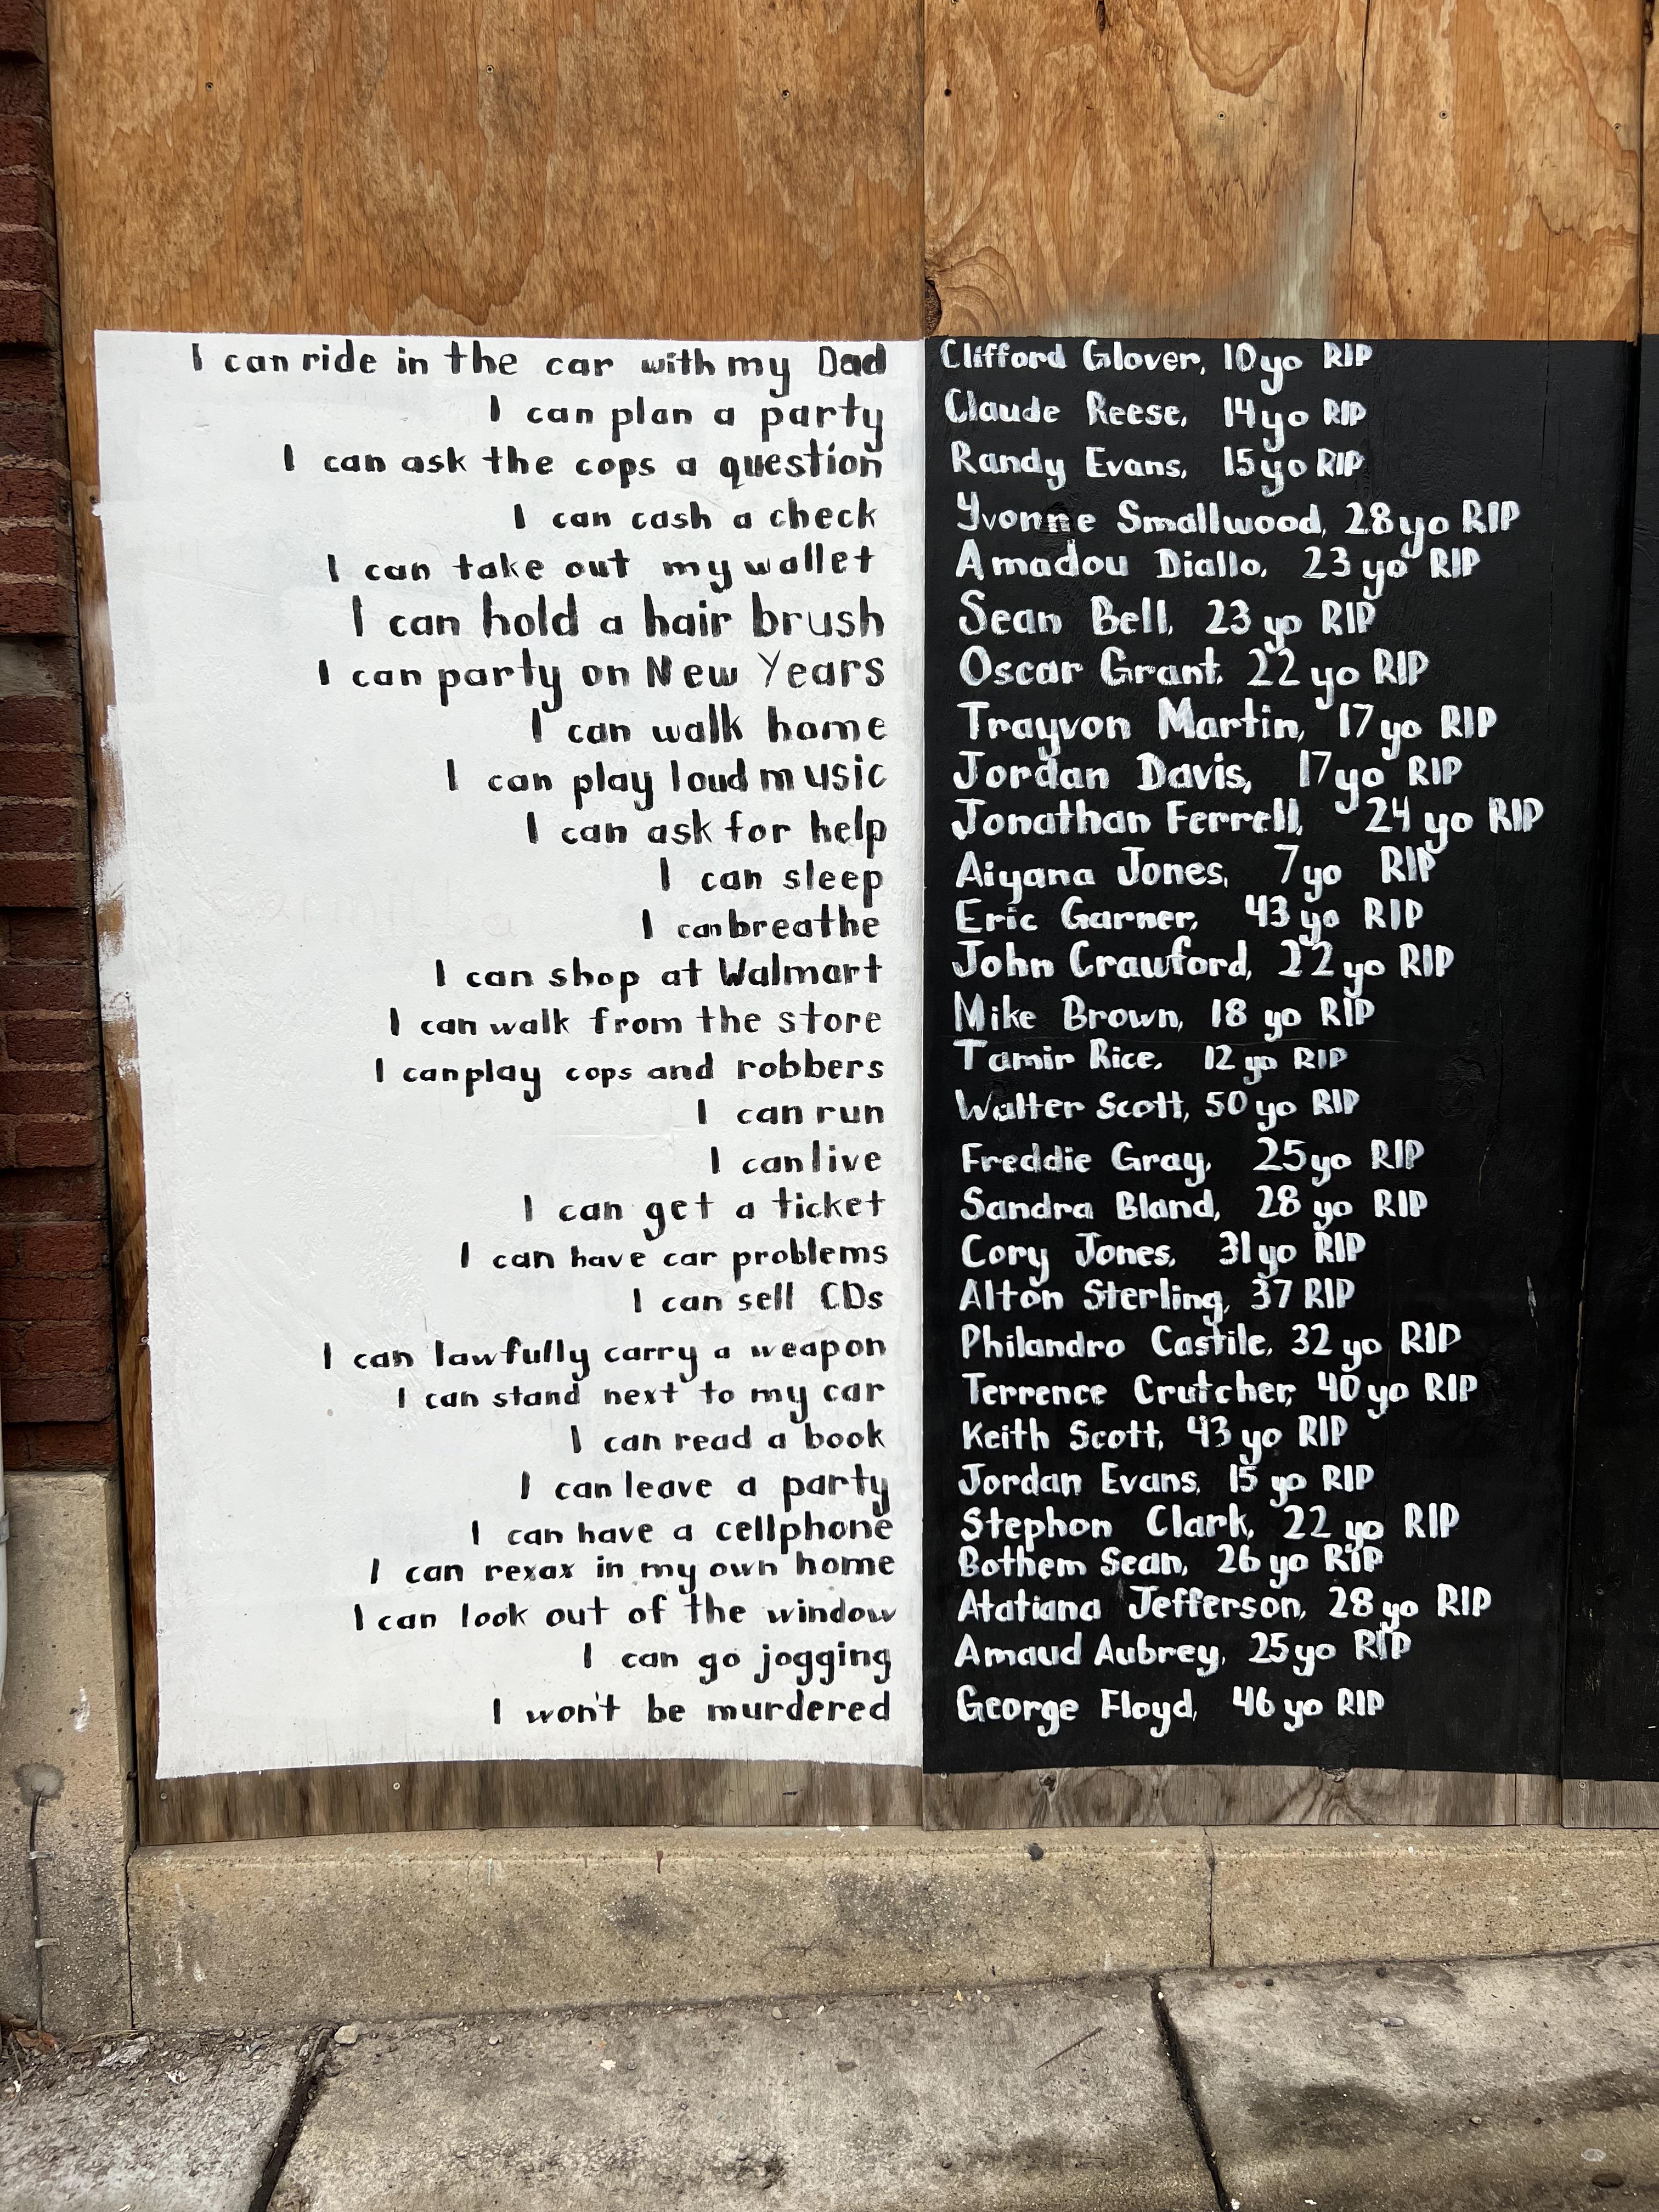 I can ride in the car with my Dad Clifford Glover, 10yo RIP
I can plan a party Claude Reese, 14yo RIP
I can ask the cops a question Randy Evans, 15yo RIP
I can cash a check Yvonne Smallwood, 28yo RIP
I can take out my wallet Amadou Diallo, 23 yo RIP
I can hold a hair brush Sean Bell, 23 yo RIP
I can party on New Years Oscar Grant, 22 yo RIP
I can walk home Trayvon Martin, 17yo RIP
I can play loud music Jordan Davis, 17yo RIP
I can ask for help Jonathan Ferrell, 24 yo RIP
I can sleep Aiyana Jones, 7yo RIP
I can breathe Eric Garner, 43 yo RIP
I can shop at Walmart John Crawford, 22 yo RIP
I can walk from the store Mike Brown, 18 yo RIP
I can play cops and robbers Tamir Rice, 12 yo RIP
I can run Walter Scott, 50 yo RIP
I can live Freddie Gray, 25yo RIP
I can get a ticket Sandra Bland, 28 yo RIP
I can have car problems Cory Jones, 31yo RIP
I can sell CDs Alton Sterling, 37 RIP
I can lawfully carry a weapon Philandro Castile, 32 yo RIP
I can stand next to my car Terrence Crutcher, 40yo RIP
I can read a book Keith Scott, 43 yo RIP
I can leave a party Jordan Evans, 15 yo RIP
I can have a cellphone Stephon Clark, 22 yo RIP
I can rexax in my own home Bothem Sean, 26 yo RIP
I can look out of the window Atatiana Jefferson, 28 yo RIP
I can go jogging Amaud Aubrey, 25yo RIP
I won't be murdered George Floyd, 46 yo RIP